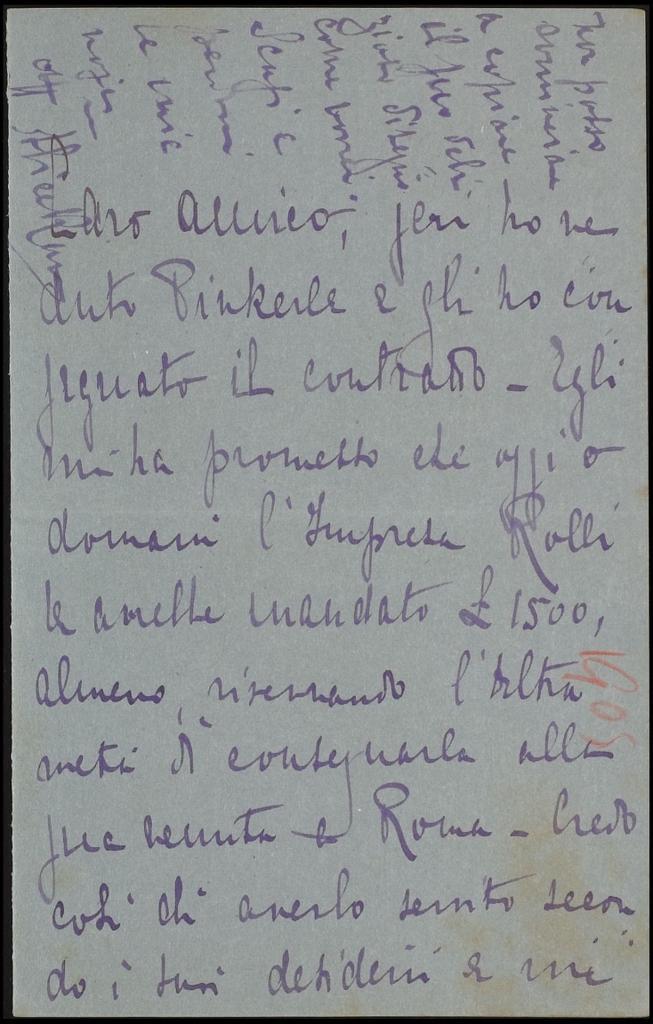 Caro Amico, jeri ho ve
duto Pinkerle e gli ho con
segnato il contratto – Egli
mi ha promesso che oggi o
domani l'Impresa Rolli
le avrebbe mandato £ 1500,
almeno, riservando l'altra
metà di consegnarla alla
sua venuta a Roma – Credo
così di averlo servito secon
do i suoi desiderii e mi
non posso
cominciare
a copiare
il suo deli
zioso disegno
come vorrei.
Scusi e
perdoni
le mie
noje –
aff